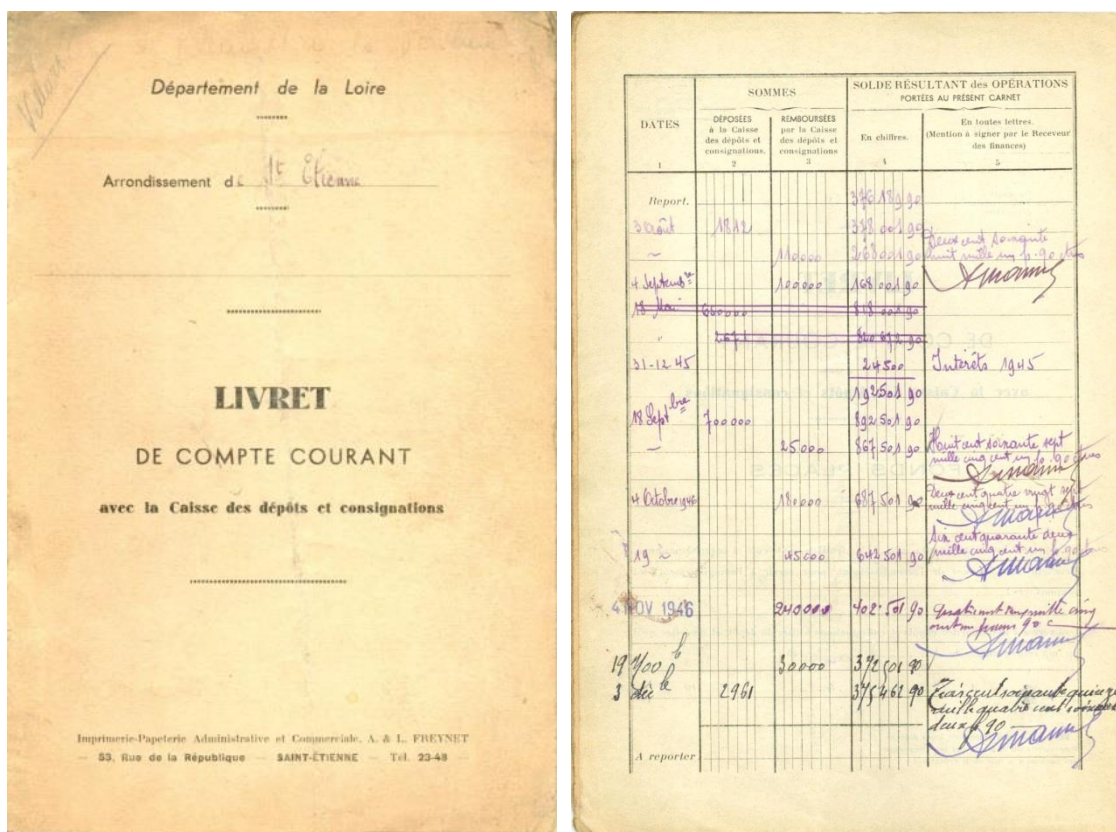 Département de la Loire
Arrondissement de St Etienne
LIVRET
DE COMPTE COURANT
avec la Caisse des dépôts et consignations
Imprimerie-Papeterie Administrative et Commerciale, A. & L. FREYNET
— 53, Rue de la République — SAINT-ÉTIENNE — Tél. 23-48 —
DATES
SOMMES
SOLDE RÉSULTANT des OPÉRATIONS
PORTÉES AU PRÉSENT CARNET
DÉPOSÉES
à la Caisse
des dépôts et
consignations.
REMBOURSÉES
par la Caisse
des dépôts et
consignations
En chiffres.
En toutes lettres.
(Mention à signer par le Receveur
des finances)
1 2 3 4 5
Report. 376 189 90
3 Août 1812 378 001 90
110000 268 001 90 Deux cent soixante
huit mille un f. 90 ctms
4 Septembre 100000 168 001 90
18 Mai 650000 818 001 90
" 2671 820 672 90
31-12-45 24500 Intérêts 1945
192501 90
18 Septbre 700000 892 501 90
25000 867 501 90 Huit cent soixante sept
mille cinq cent un f. 90 ctms
4 Octobre 1946 180000 687 501 90 cent quatre vingt sept
mille cinq cent un
19 45000 642 501 90 Six cent quarante deux
mille cinq cent un f. 90
4 NOV 1946 240000 402 501 90 mille cinq
cent un francs 90 c
19 30000 372501 90
3 déc 2961 375462 90 Trois cent soixante quinze
mille quatre cent soixante
deux f 90
A reporter